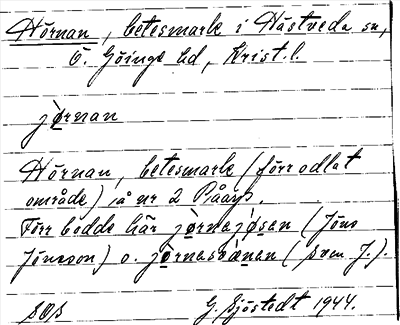 Hörnan, betesmark i Hästveda sn,
Ö. Göinge hd, Krist. l.
jò̤rnan
Hörnan, betesmark (förr odlat
område) å nr 2 Påarp.
Förr bodde här jò̤rnajø̤san (Jöns
Jönsson) o. jò̤rnasvä̤nan (Sven J.).
G. Sjöstedt 1944.